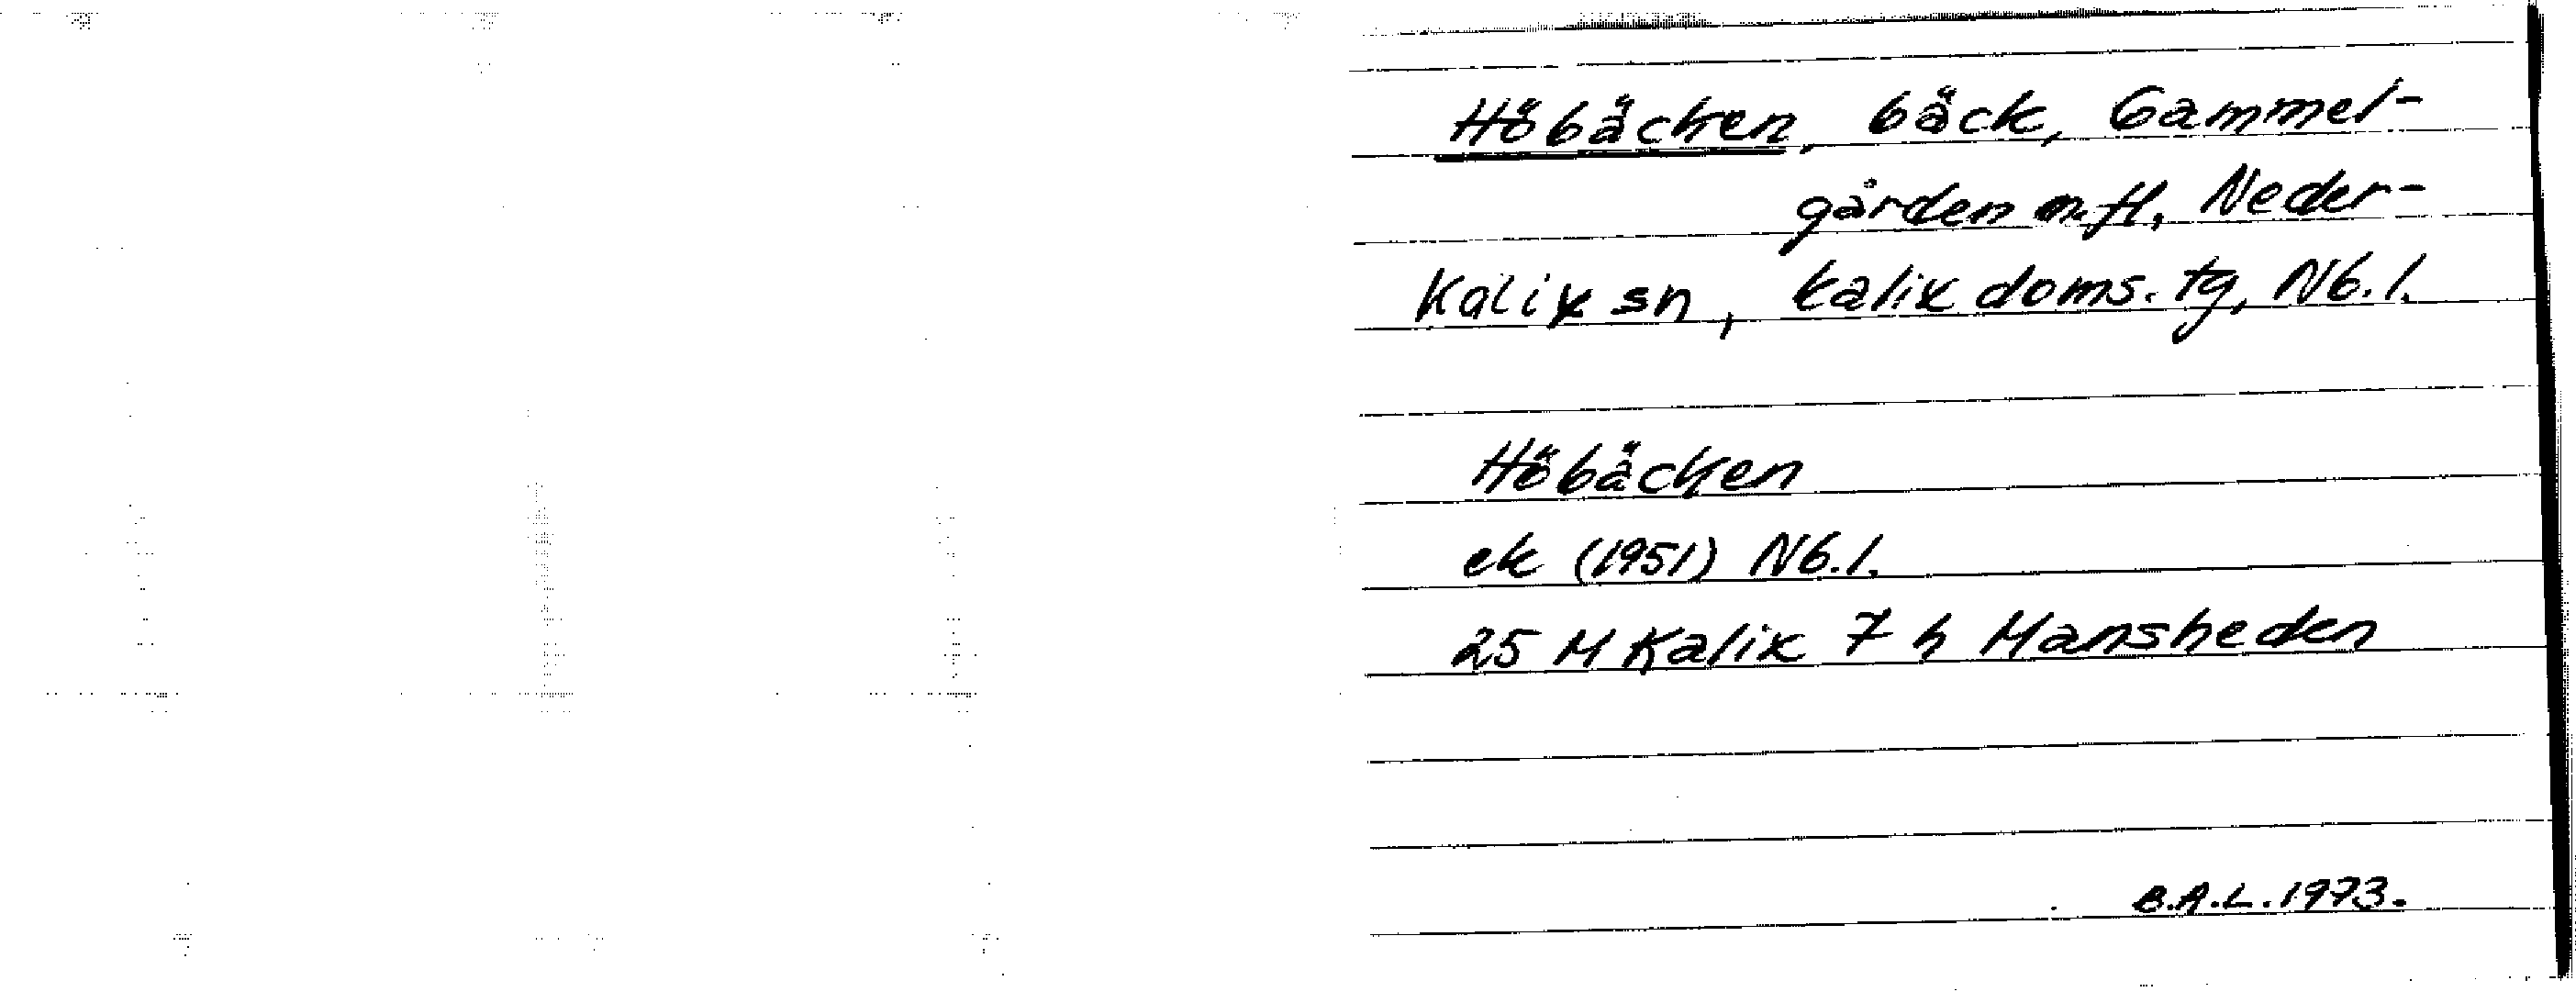 Höbäcken, bäck, Gammel-
gården m.fl., Neder-
Kalix sn, Kalix doms. tg, Nb. l.
Höbäcken
ek (1951) Nb. l.
25 M Kalix 7 h Mansheden
B.A.L. 1973.